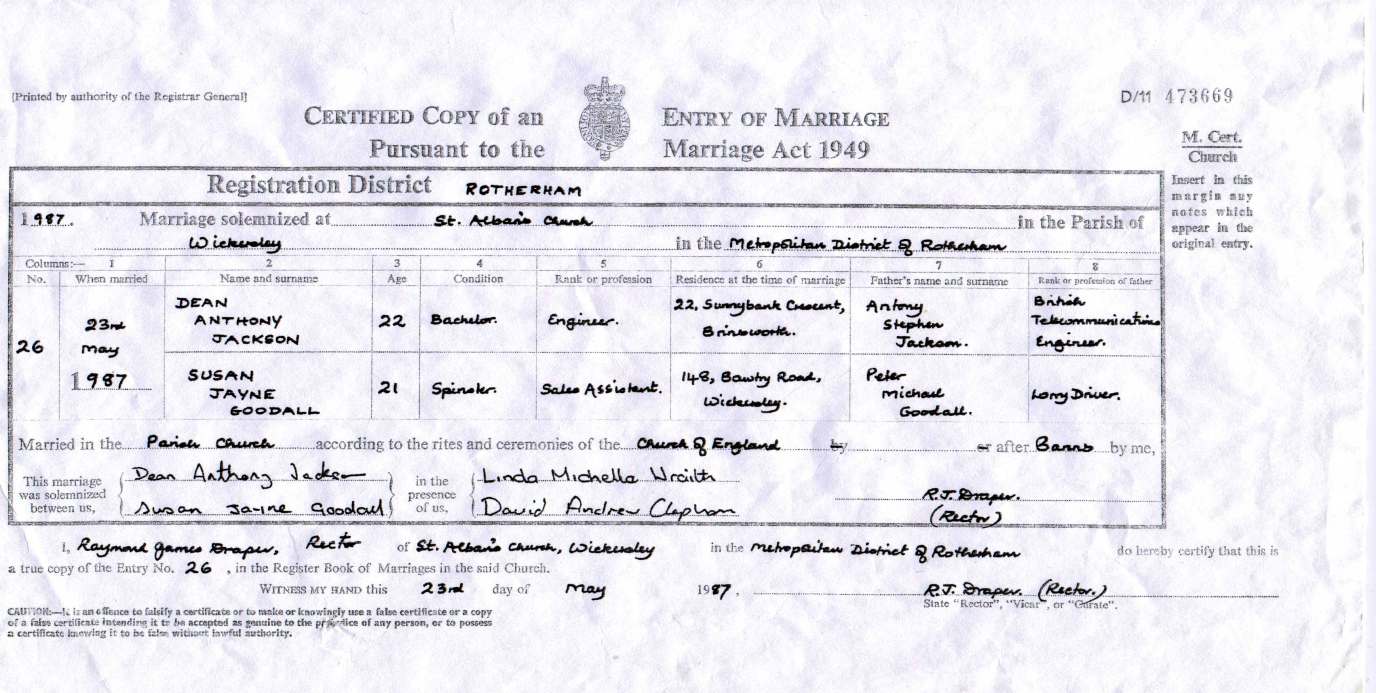 [Printed by authority of the Registrar General]
D/11 473669
CERTIFIED COPY of an ENTRY OF MARRIAGE
Pursuant to the Marriage Act 1949
M. Cert.
Church
Insert in this
margin any
notes which
appear in the
original entry.
Registration District ROTHERHAM
1987. Marriage solemnized at St. Alban's Church in the Parish of
Wickersley in the Metropolitan District of Rotherham
Columns:— 1 2 3 4 5 6 7 8
No. When married Name and surname Age Condition Rank or profession Residence at the time of marriage Father's name and surname Rank or profession of father
26
23rd
May
1987
DEAN
ANTHONY
JACKSON
22
Bachelor.
Engineer.
22, Sunnybank Crescent,
Brinsworth.
Antony
Stephen
Jackson.
British
Telecommunications
Engineer.
SUSAN
JAYNE
GOODALL
21
Spinster.
Sales Assistant.
148, Bawtry Road,
Wickersley.
Peter
Michael
Goodall.
Lorry Driver.
Married in the Parish Church according to the rites and ceremonies of the Church of England by or after Banns by me,
This marriage
was solemnized
between us,
Dean Anthony Jackson
Susan Jayne Goodall
in the
presence
of us,
Linda Michelle Wraith
David Andrew Clapham
R.J. Draper.
(Rector)
I, Raymond James Draper, Rector of St. Alban's Church, Wickersley in the Metropolitan District of Rotherham do hereby certify that this is
a true copy of the Entry No. 26, in the Register Book of Marriages in the said Church.
WITNESS MY HAND this 23rd day of May 1987, R.J. Draper. (Rector.)
State "Rector", "Vicar", or "Curate".
CAUTION:—It is an offence to falsify a certificate or to make or knowingly use a false certificate or a copy
of a false certificate intending it to be accepted as genuine to the prejudice of any person, or to possess
a certificate knowing it to be false without lawful authority.